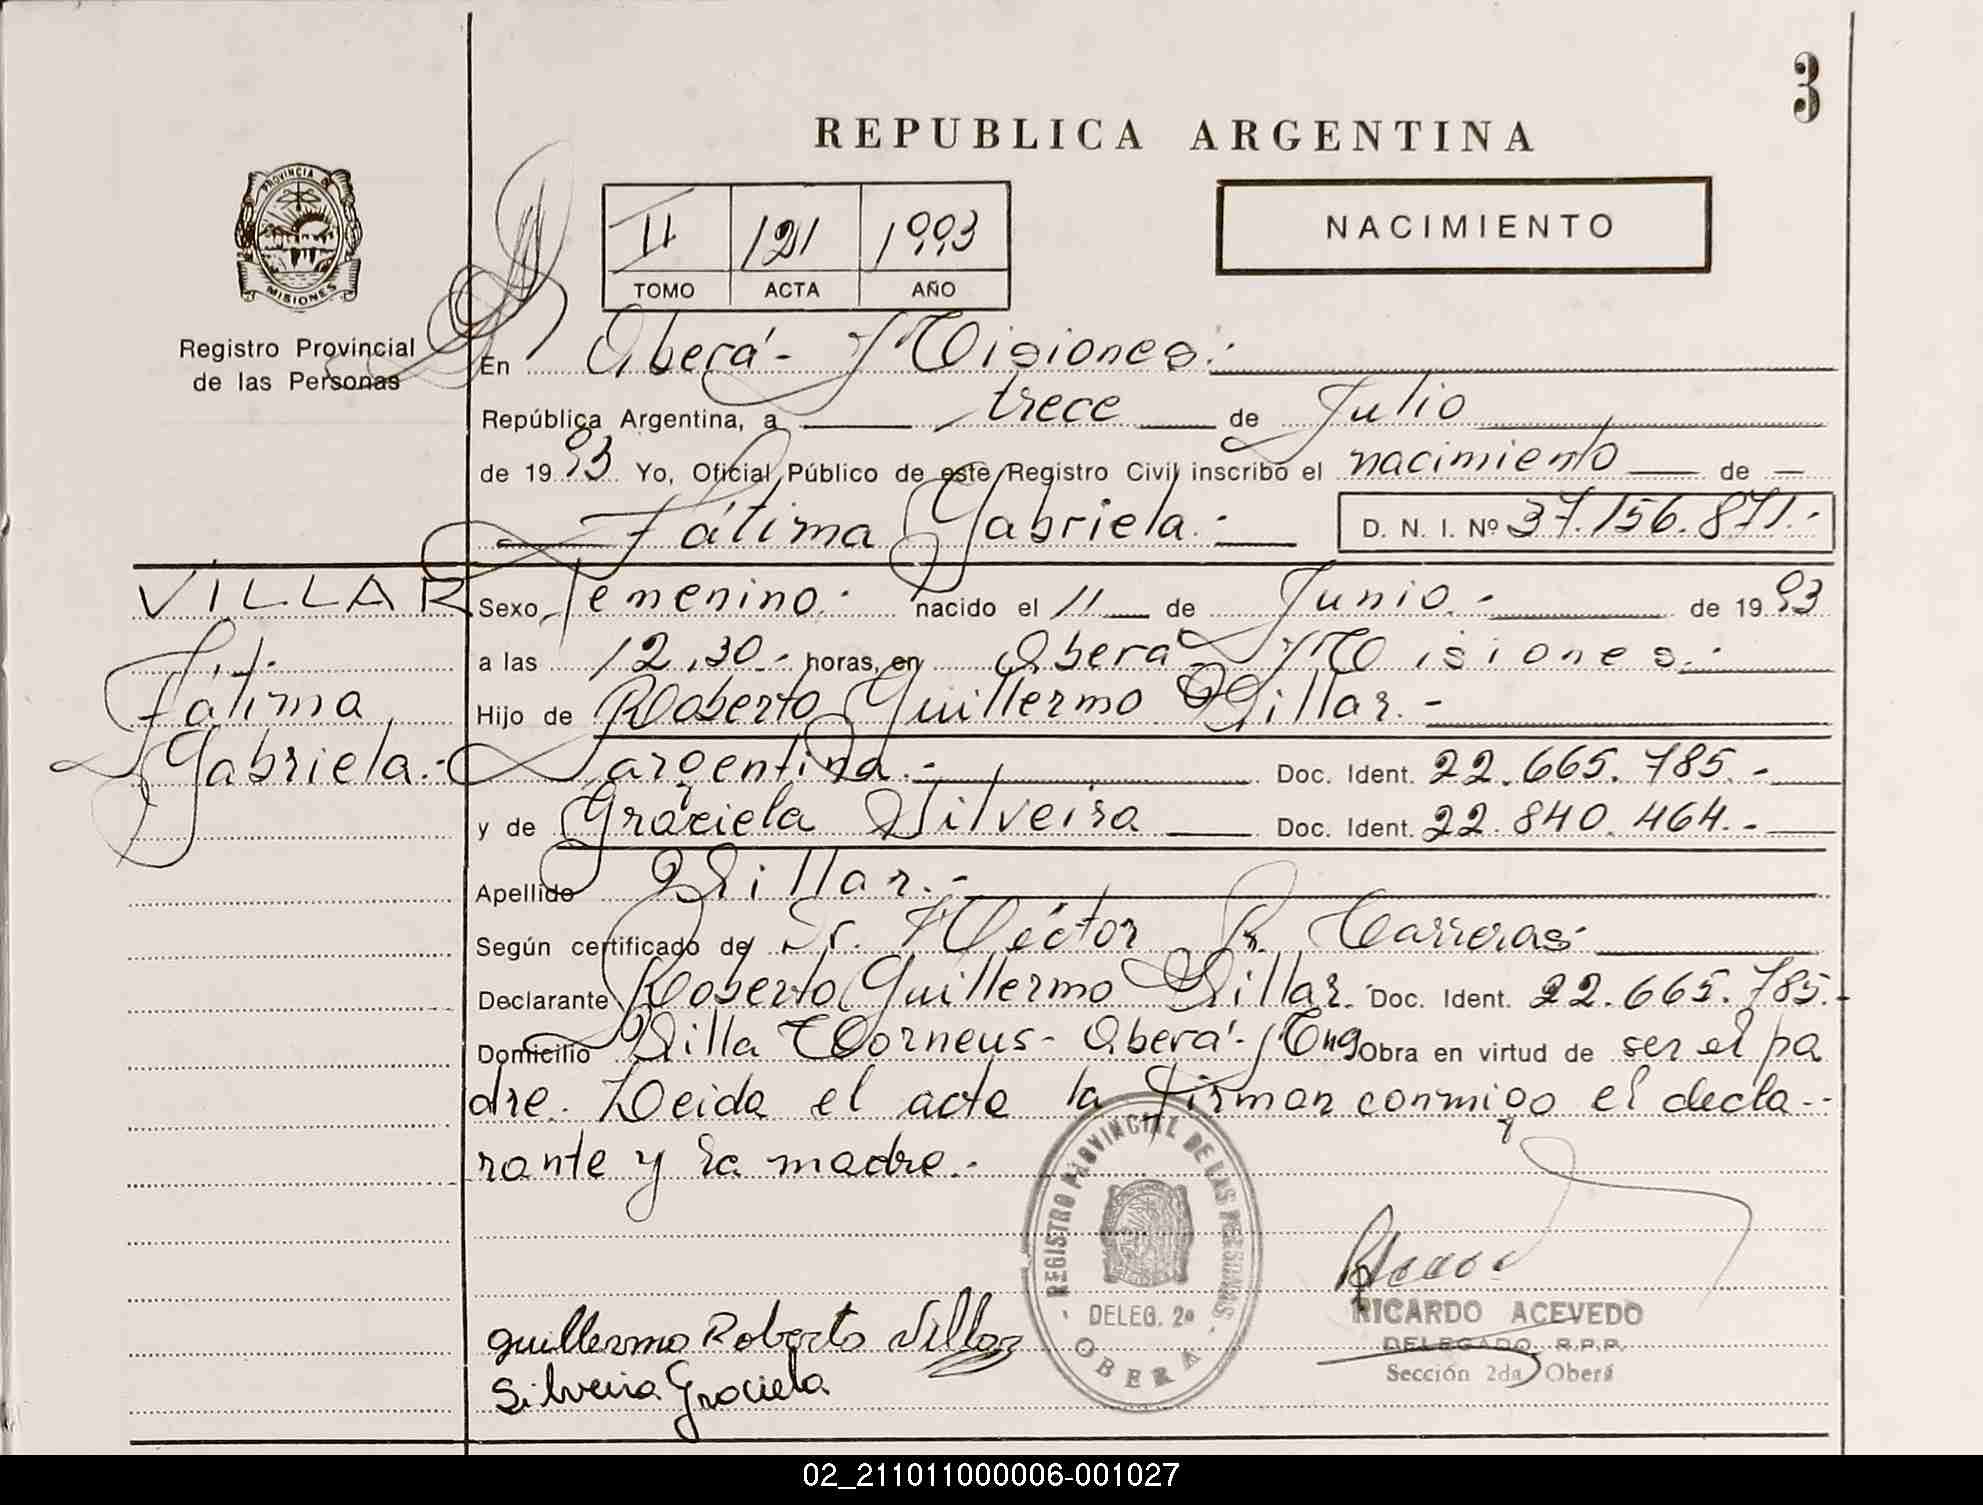 3
REPUBLICA ARGENTINA
PROVINCIA DE
MISIONES
Registro Provincial
de las Personas
II 121 1993
TOMO ACTA AÑO
NACIMIENTO
En Oberá - Misiones.-
República Argentina, a trece de Julio
de 1993 Yo, Oficial Público de este Registro Civil inscribo el nacimiento de
Fátima Gabriela.- D. N. I. Nº 37.156.871.-
VILLAR
Fátima
Gabriela.-
Sexo, femenino.- nacido el 11 de Junio.- de 1993
a las 12,30.- horas, en Oberá - Misiones.-
Hijo de Roberto Guillermo Villar.-
argentina.- Doc. Ident. 22.665.785.-
y de Graciela Silveira Doc. Ident. 22.840.464.-
Apellido Villar.-
Según certificado de Dr. Héctor R. Carreras
Declarante Roberto Guillermo Villar. Doc. Ident. 22.665.785.-
Domicilio Villa - Oberá - Obra en virtud de ser el pa
dre. Leida el acta la firman conmigo el decla-
rante y la madre.-
REGISTRO PROVINCIAL DE LAS PERSONAS
DELEG. 2ª
OBERA
guillermo Roberto Villar
Silveira Graciela
RICARDO ACEVEDO
DELEGADO R.P.P.
Sección 2da Oberá
02_211011000006-001027